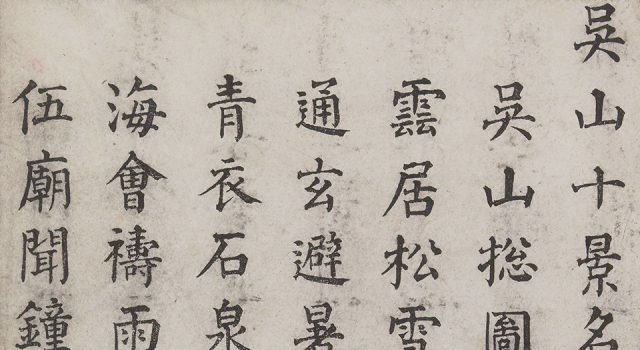 吳山十景名
吳山揔圖
雲居松雪
通玄避暑
青衣石泉
海會禱雨
伍廟聞鐘